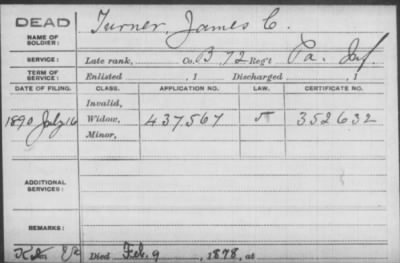 DEAD
NAME OF SOLDIER: Turner, James C.
SERVICE: Late rank, Co. B, 72 Reg't Pa. Inf.
TERM OF SERVICE: Enlisted , 1 Discharged , 1
DATE OF FILING. CLASS. APPLICATION NO. LAW. CERTIFICATE NO.
Invalid,
1890 July 16 Widow, 437567 352632
Minor,
ADDITIONAL SERVICES:
REMARKS:
Died Feb. 9, 1878, at